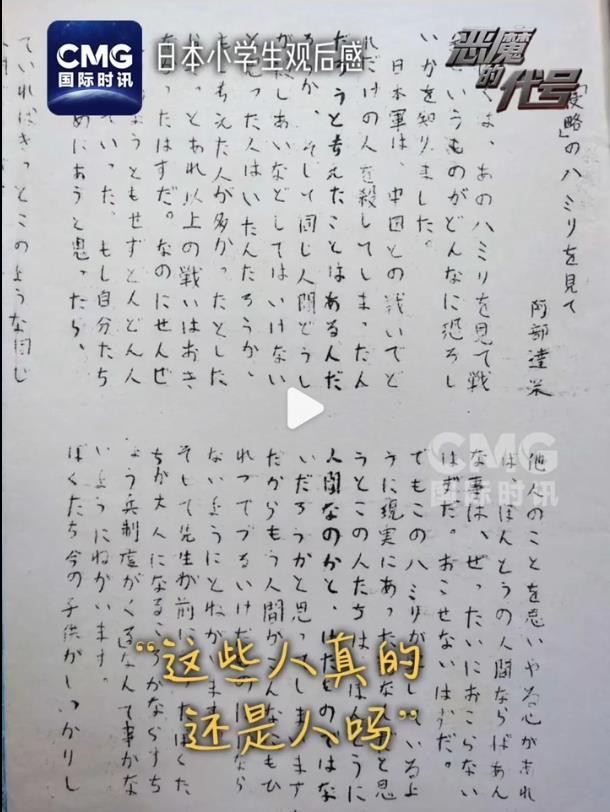 CMG
国际时讯
日本小学生观后感
恶魔
的代号
侵略」のハミリを見て
阿部達栄
くは、あのハミリを見て戦
いうものがどんなに恐ろし
いかを知りました。
日本軍は、中国との戦いでど
れだけの人を殺してしまったん
だろうと考えたことはあるんだ
ろうか、そして同じ人間どうし
しあいなどしてはいけない
と思った人はいたんだろうか、
考えた人が多かったとした
とあれ以上の戦いはおき
ったはずだ。なのにせんぜ
ようともせずどんどん人
ていった、もし自分たち
めにあうと思ったら、
ていればきっとこのような同じ
他人のことを思いやる心があれ
ば、ほんとうの人間ならばあん
な事は、ぜったいにおこらない
はずだ。おこせないはずだ。
でもこのハミリが しているよ
うに現実にあった なんだと思
うとこの人たちはほんとうに
人間なのかと、けだものではな
いだろうかと思ってしまいます
だからもう人間がこんなにもひ
れつでずるいけだ のにはなら
ないようにとねが ます
そして先生が前に ったぼくた
ちが大人になるころ がならすち
ょう兵制度がくるなんて事がな
いようにねがいます。
ぼくたち今の子供がしっかりし
CMG
国际时讯
“这些人真的
还是人吗”